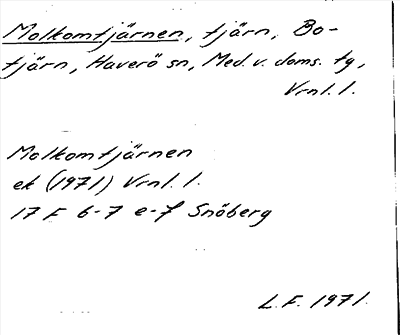 Molkomtjärnen, tjärn, Bo-
tjärn, Haverö sn, Med. v. doms. tg,
Vrnl. l.
Molkomtjärnen
ek (1971) Vrnl. l.
17 F 6-7 e-f Snöberg
L.F. 1971.